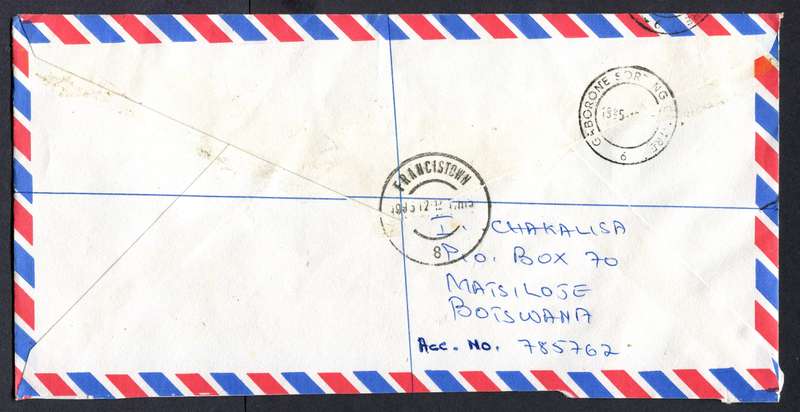 GABORONE SORTING CENTRE
6
FRANCISTOWN
8
I. CHAKALISA
P.O. BOX 70
MATSILOJE
BOTSWANA
Acc. No. 785762